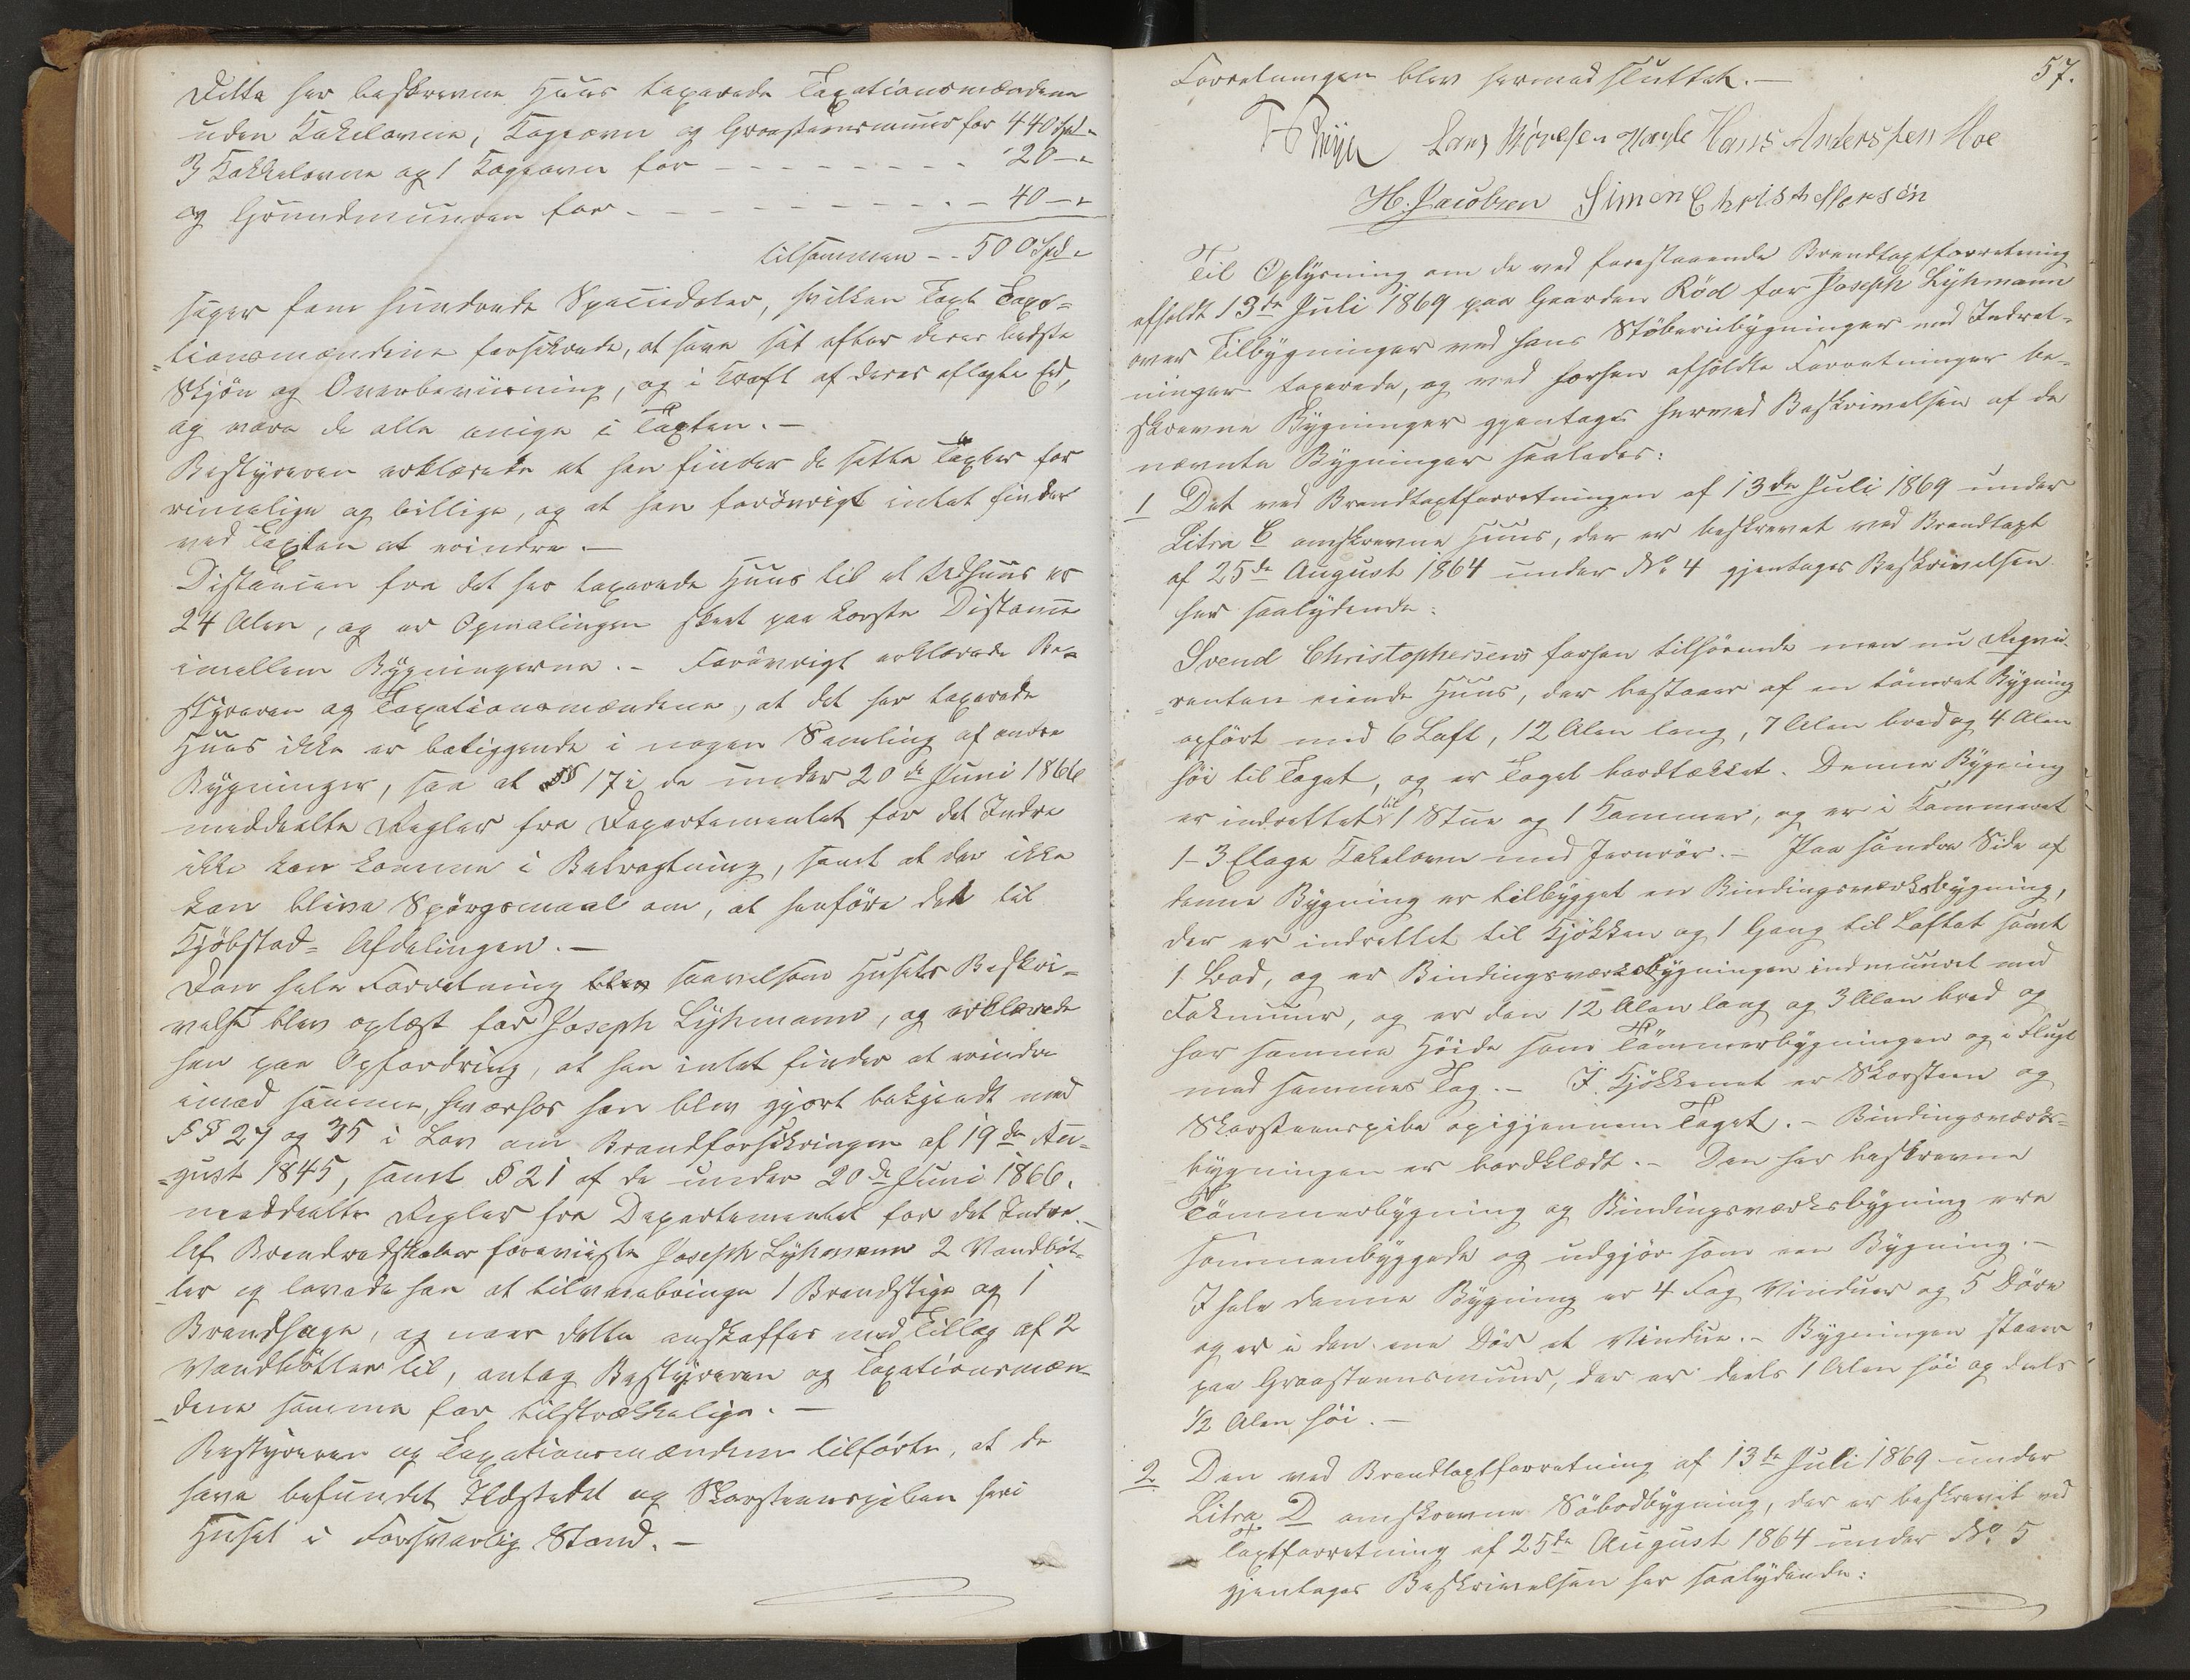 Dette her beskrevne Huus taxerede Taxationsmændene
uden Kakelovne, Kogeovn og Graasteensmuur for 440 Spd.
3 Kakkelovne og 1 Kogeovn for - - - - - - - 20 —
og Grundmuuren for - - - - - - - - - 40 —
tilsammen - - 500 Spd.
siger fem hundrede Speciedaler, hvilken Taxt Taxa=
tionsmændene forsikrede, at have sat efter deres bedste
Skjön og Overbeviisning, og i Kraft af deres aflagte Eed,
og vare de alle enige i Taxten. —
Bestyreren erklærede at han finder de satte Taxter for
rimelige og billige, og at han forövrigt intet finder
ved Taxten at erindre. —
Distancen fra det her taxerede Huus til et Udhuus er
24 Alen, og er Opmalingen skeet paa korste Distance
imellem Bygningerne. — Forövrigt erklærede Be=
styreren og Taxationsmændene, at det her taxerede
Huus ikke er beliggende i nogen Samling af andre
Bygninger, saa at §§ 17 i de under 20de Juni 1866
meddeelte Regler fra Departementet for det Indre
ikke kan komme i Betragtning, samt at der ikke
kan blive Spörgsmaal om, at henföre det til
Kjöbstad= Afdelingen. —
Den hele Forretning blev saavelsom Husets Beskri=
velse blev oplæst for Joseph Lyhmann, og erklærede
han paa Opfordring, at han intet finder at erindre
imod samme, hvorhos han blev gjort bekjendt med
§§ 27 og 35 i Lov om Brandforsikringen af 19de Au=
gust 1845, samt § 21 af de under 20de Juni 1866.
meddeelte Regler fra Departementet for det Indre. —
Af Brandredskaber foreviiste Joseph Lyhmann 2 Vandböt=
ter og lovede han at tilveiebringe 1 Brandstige og 1
Brandhage, og naar dette anskaffes med Tillæg af 2
Vandbötter til, antog Bestyreren og Taxationsmæn=
dene samme for tilstrækkelige. —
Bestyreren og Taxationsmændene tilförte, at de
have befundet Ildstedet og Skorsteenspiben heri
Huset i Forsvarlig Stand. —
57.
Forretningen blev hermed sluttet. —
Hans Andersken Moe
H. Jacobsen Simen Christoffersen
Til Oplysning om de ved forestaaende Brandtaxtforretning
afholdt 13de Juli 1869 paa Gaarden Röd for Joseph Lyhmann
over Tilbygninger ved hans Stöberibygninger med Indret=
ninger taxerede, og ved forhen afholdte Forretninger be=
skrevne Bygninger gjentages herved Beskrivelsen af de
nævnte Bygninger saaledes:
1 Det ved Brandtaxtforretningen af 13de Juli 1869 under
Litra C omskrevne Huus, der er beskrevet ved Brandtaxt
af 25de August 1864 under No 4 gjentages Beskrivelsen
her saalydende:
Svend Christophersens forhen tilhörende men nu Reqvi=
renten eiende Huus, der bestaaer af en tömret Bygning
opfört med 6 Laft, 12 Alen lang, 7 Alen bred og 4 Alen
höi til Taget, og er Taget bordtækket. Denne Bygning
er indrettet til 1 Stue og 1 Kammer, og er i Kammeret
1- 3 Etage Kakelovn med Jernrör. — Paa söndre Side af
denne Bygning er tilbygget en Bindingsværksbygning,
der er indrettet til Kjökken og 1 Gang til Loftet samt
1 Bod, og er Bindingsværksbygningen indmuuret med
Fakmuur, og er den 12 Alen lang og 3 Alen bred og
har samme Höide som Tömmerbygningen og i Flugt
med sammes Tag. — I Kjökkenet er Skorsteen og
Skorsteenspibe opigjennem Taget. — Bindingsværks=
bygningen er bordklædt. — Den her beskrevne
Tömmerbygning og Bindingsværksbygning ere
sammenbyggede og udgjör som een Bygning. —
I hele denne Bygning er 4 Fag Vinduer og 5 Döre
og er i den ene Dör et Vindue. — Bygningen staaer
paa Graasteensmuur, der er deels 1 Alen höi og deels
1/2 Alen höi. —
2 Den ved Brandtaxtforretning af 13de Juli 1869 under
Litra D omskrevne Söbodbygning, der er beskrevet ved
Taxtforretning af 25de August 1864 under No 5
gjentages Beskrivelsen her saalydende: